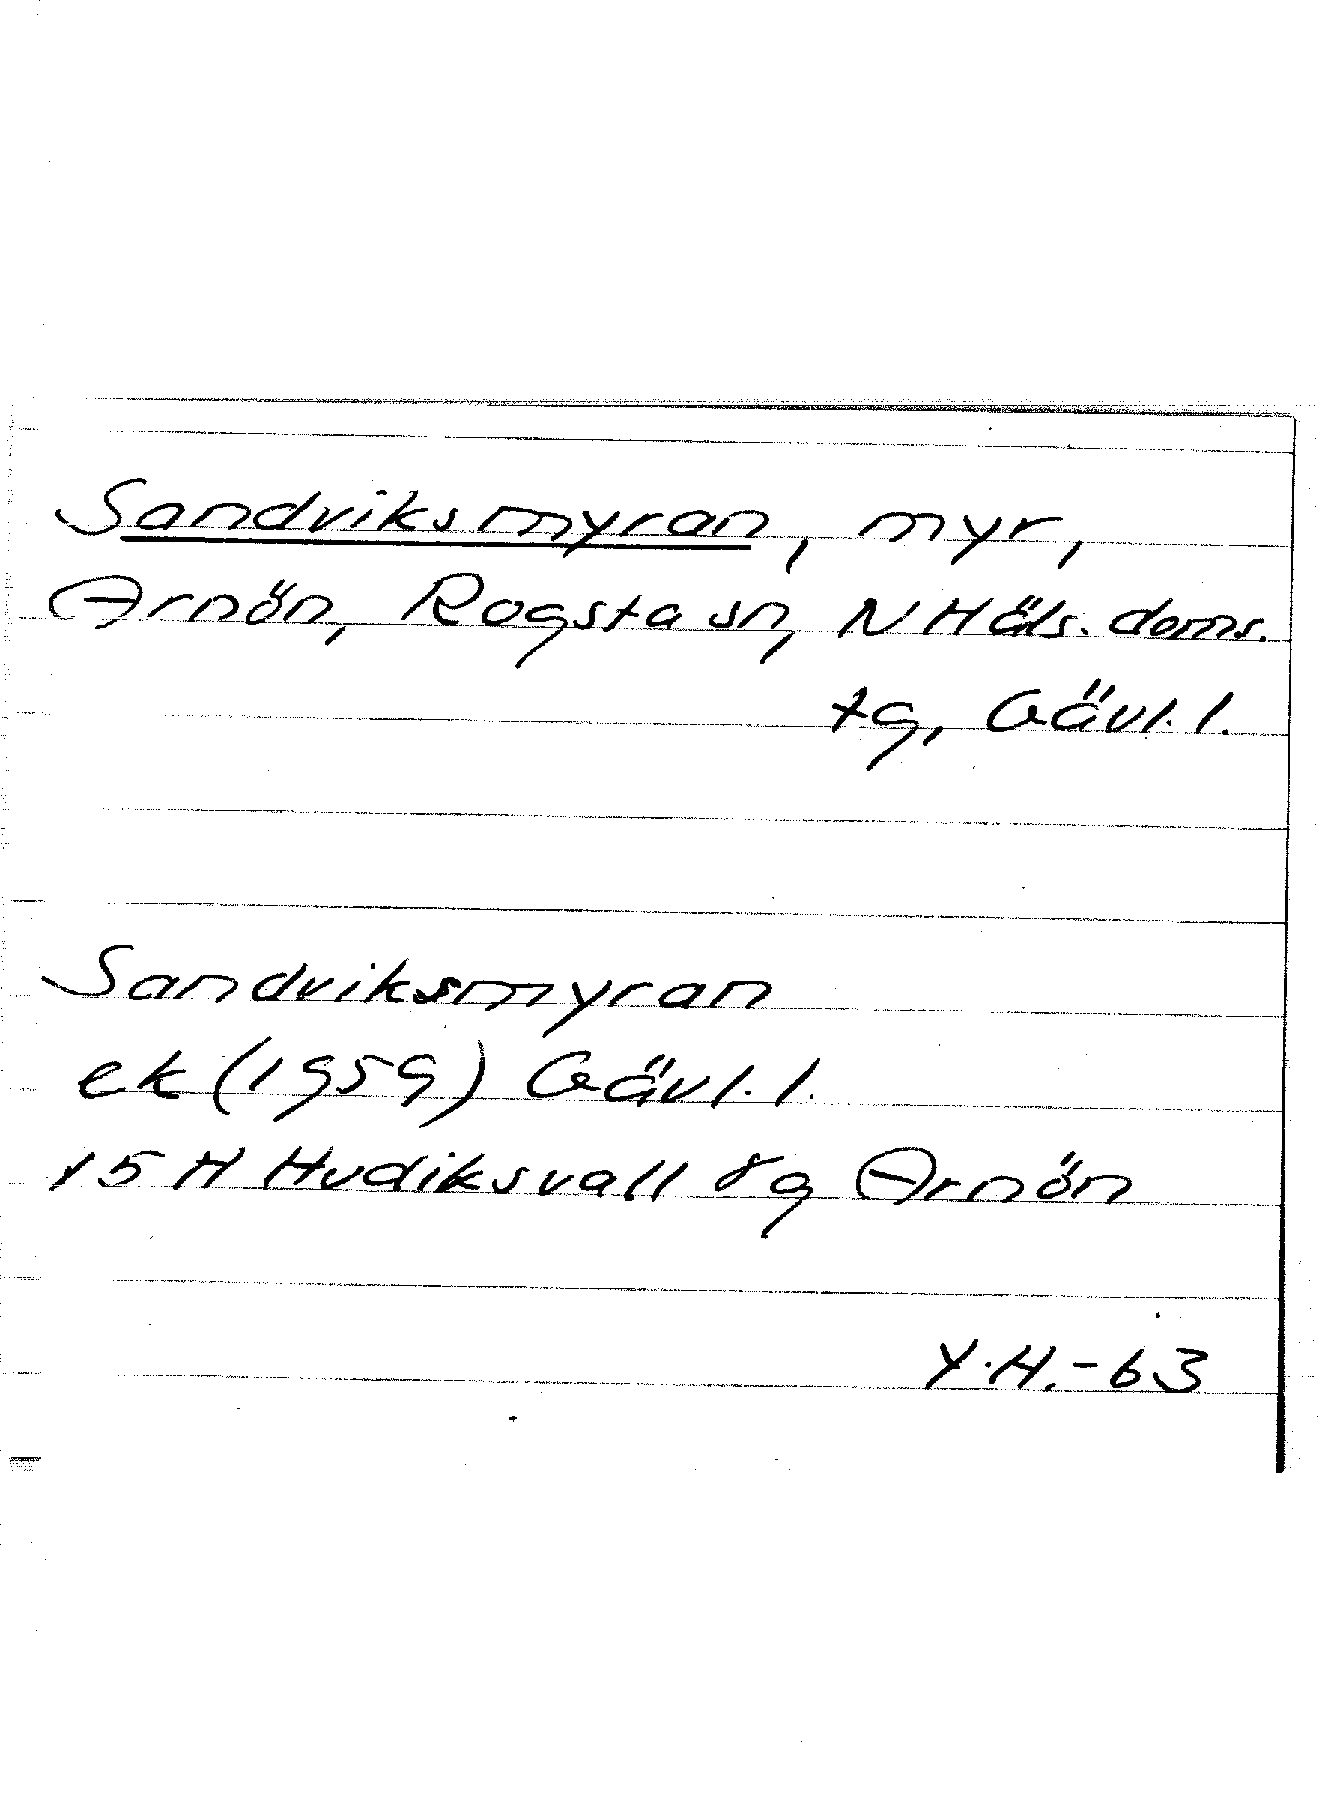 Sandviksmyran, myr,
Arnön, Rogsta sn, N Häls. doms.
tg, Gävl. l.
Sandviksmyran
ek (1959) Gävl. l.
15 H Hudiksvall 8g Arnön
Y.H.-63